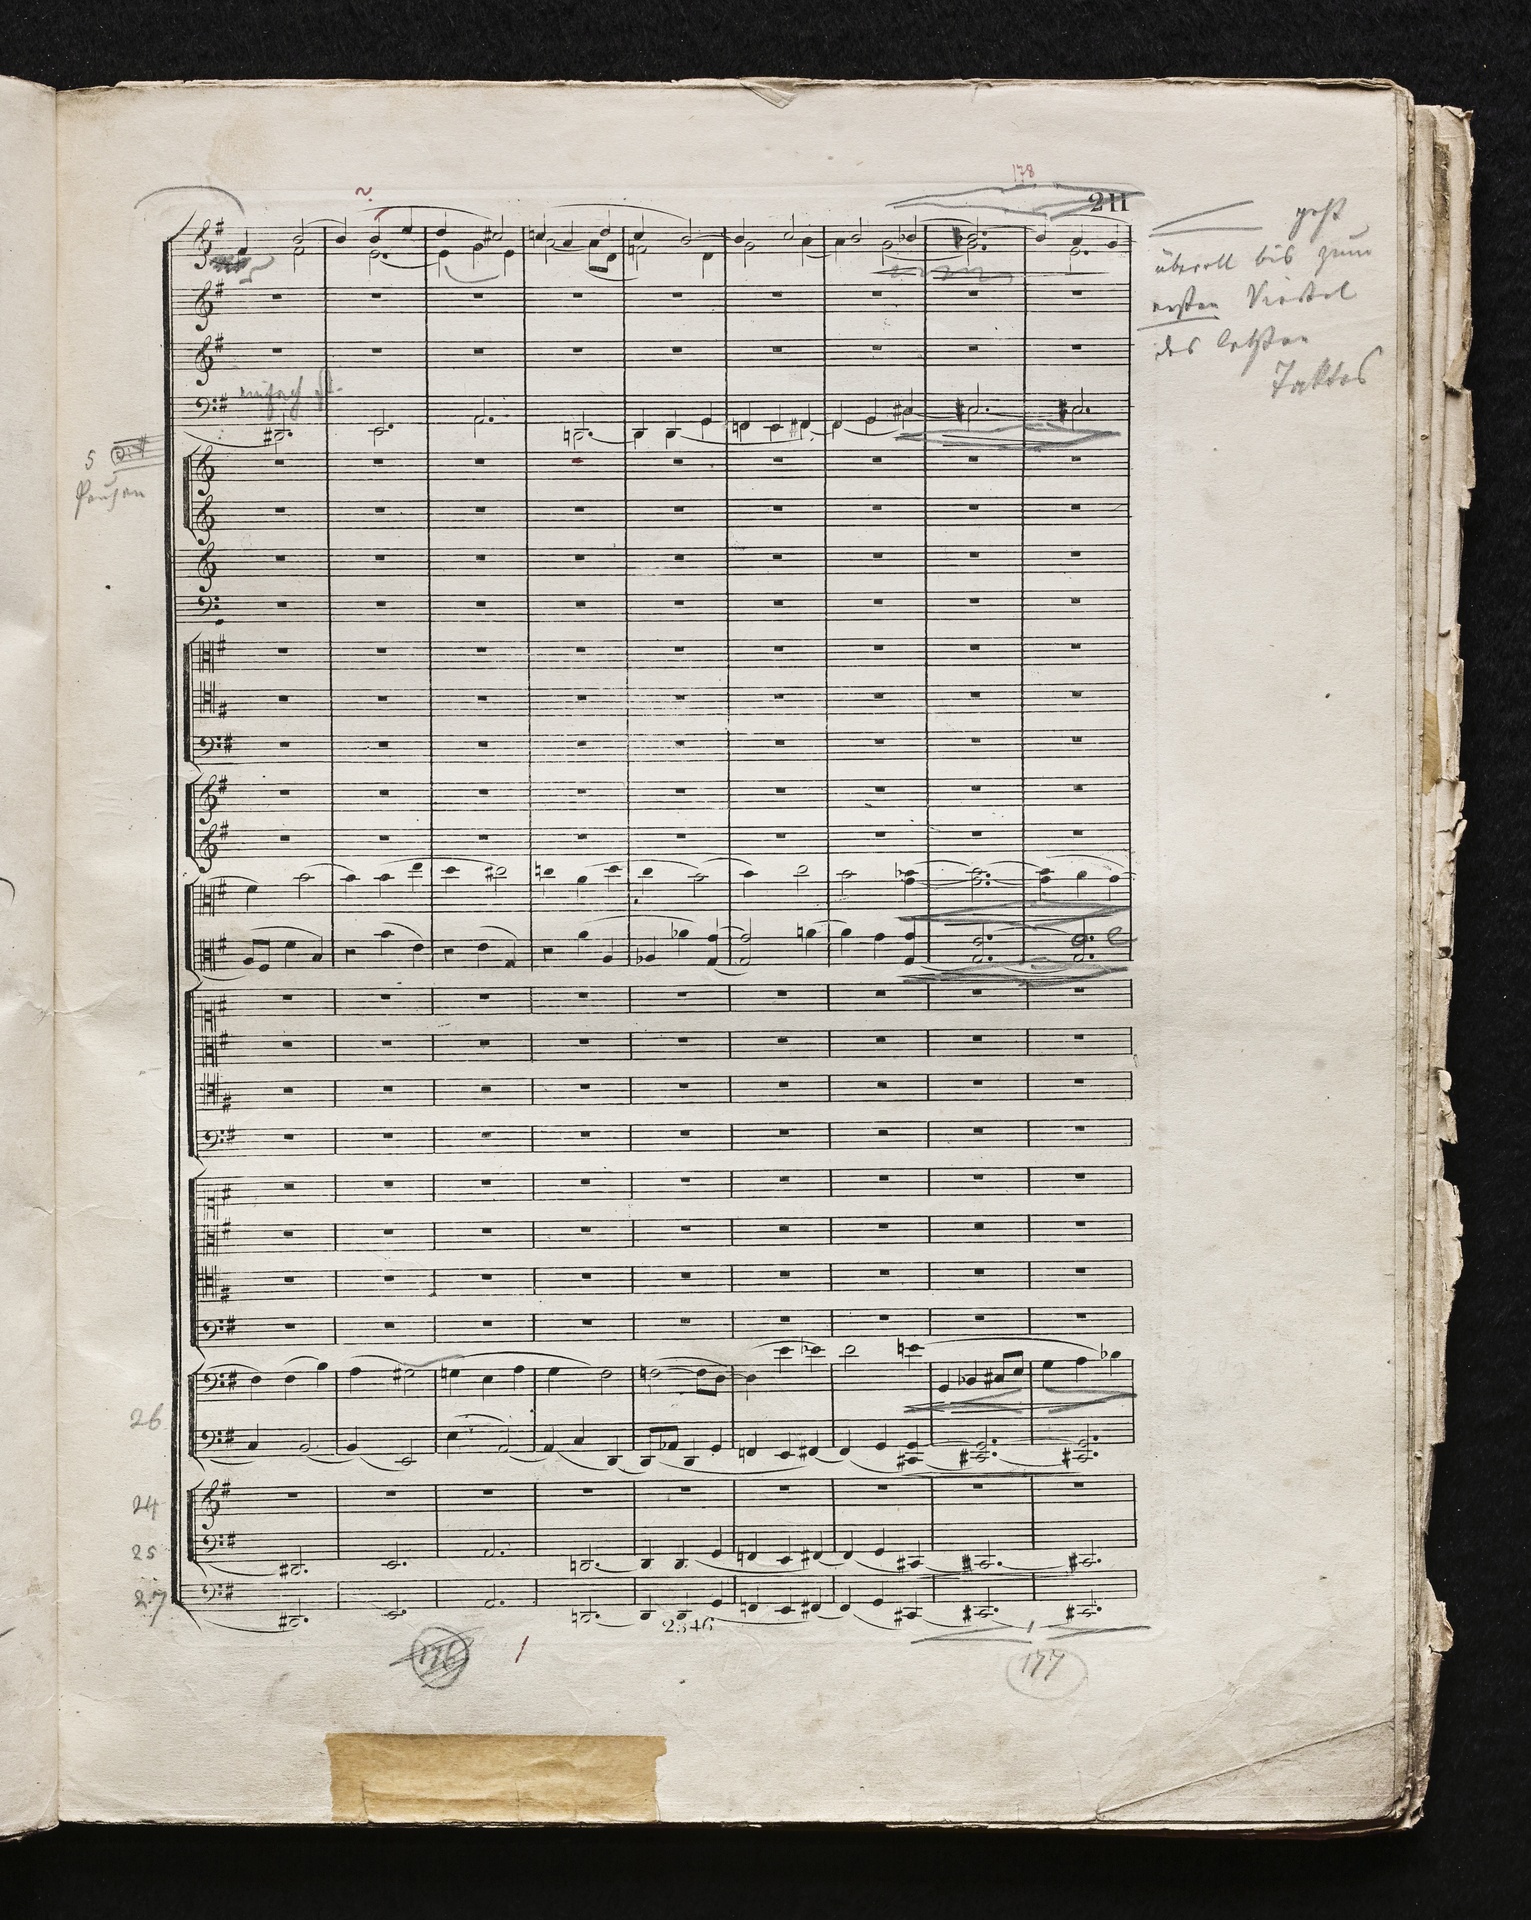 178
211
geht
überall bis zum
ersten Viertel
des letzten
Taktes
einfach
5
Pausen
26
24
25
27
2346
176
177